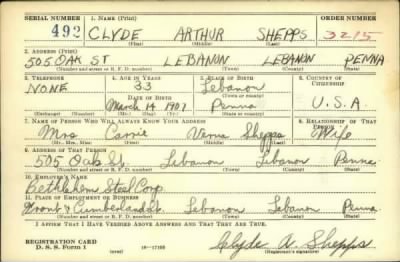 SERIAL NUMBER 1. NAME (Print) ORDER NUMBER
492 CLYDE ARTHUR SHEPPS 3215
(First) (Middle) (Last)
2. ADDRESS (Print)
505 OAK ST LEBANON LEBANON PENNA
(Number and street or R. F. D. number) (Town) (County) (State)
3. TELEPHONE 4. AGE IN YEARS 5. PLACE OF BIRTH 6. COUNTRY OF CITIZENSHIP
NONE 33 Lebanon
DATE OF BIRTH (Town or county)
March 14 1907 Penna U.S.A.
(Exchange) (Number) (Mo.) (Day) (Yr.) (State or country)
7. NAME OF PERSON WHO WILL ALWAYS KNOW YOUR ADDRESS 8. RELATIONSHIP OF THAT PERSON
Mrs Carrie Verna Shepps Wife
(Mr., Mrs., Miss) (First) (Middle) (Last)
9. ADDRESS OF THAT PERSON
505 Oak St. Lebanon Lebanon Penna.
(Number and street or R. F. D. number) (Town) (County) (State)
10. EMPLOYER'S NAME
Bethlehem Steel Corp.
11. PLACE OF EMPLOYMENT OR BUSINESS
Front & Cumberland St. Lebanon Lebanon Penna
(Number and street or R. F. D. number) (Town) (County) (State)
I AFFIRM THAT I HAVE VERIFIED ABOVE ANSWERS AND THAT THEY ARE TRUE.
REGISTRATION CARD
D. S. S. Form 1 (over) 16—17105 Clyde A. Shepps
(Registrant's signature)